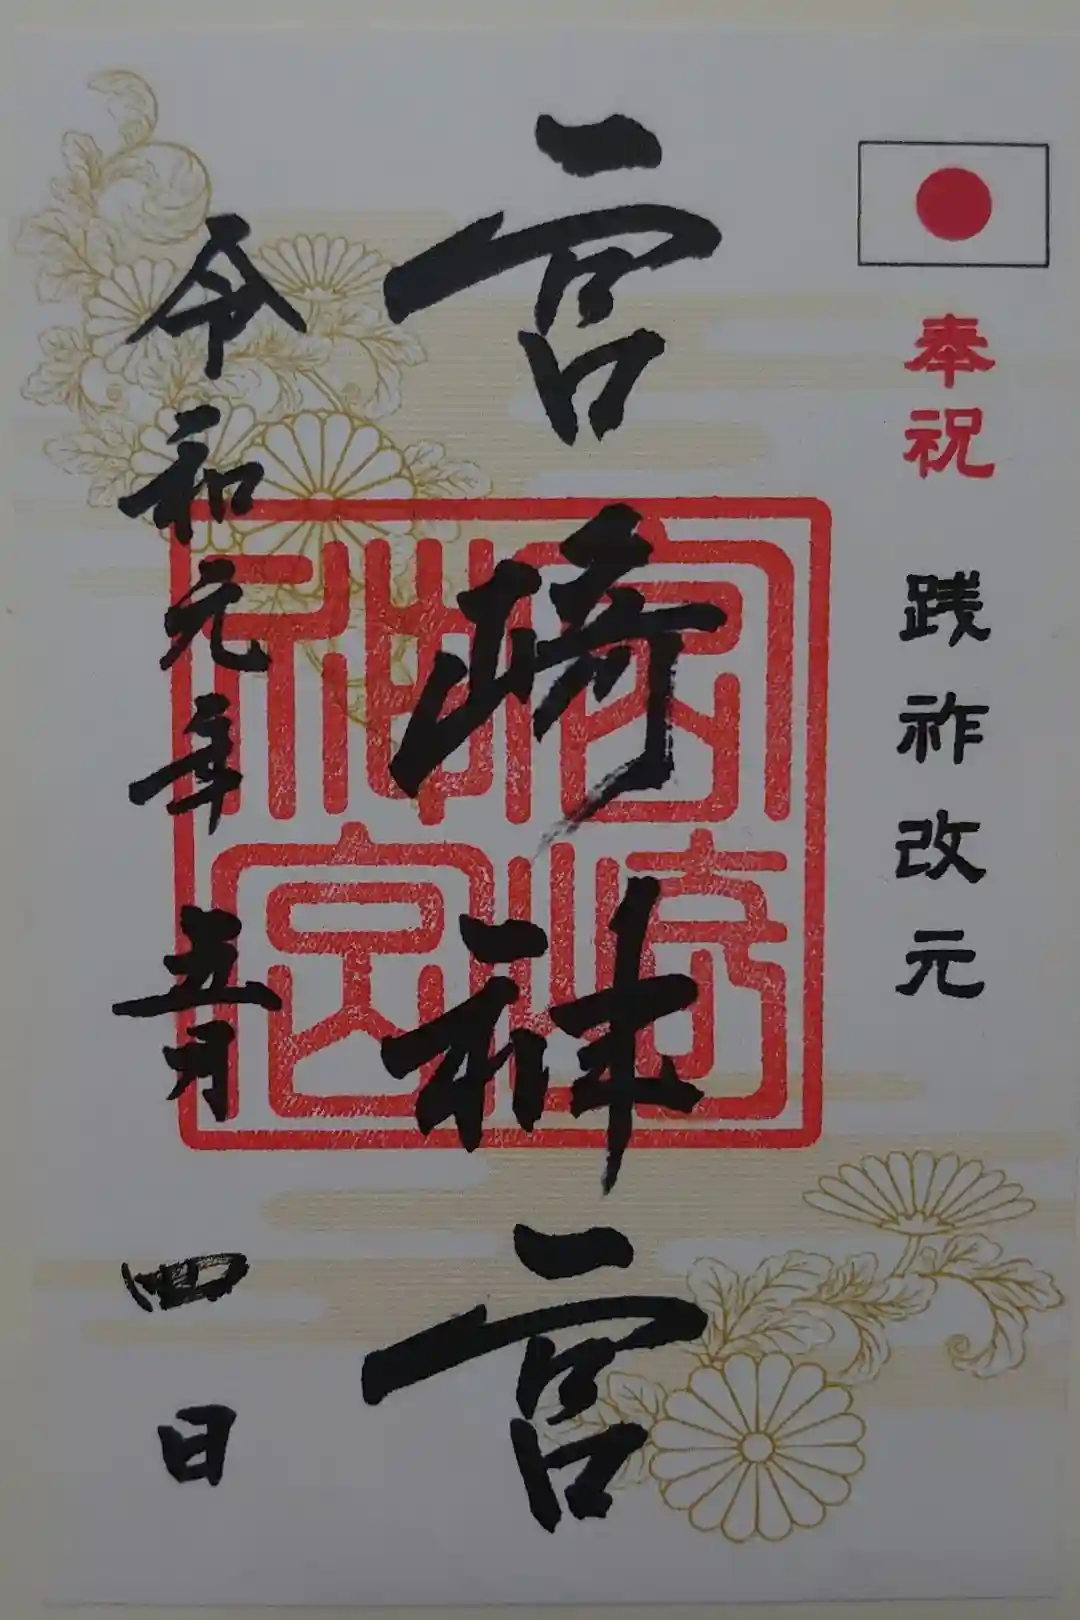 奉祝 践祚改元
宮崎神宮
令和元年五月四日
宮崎
神宮